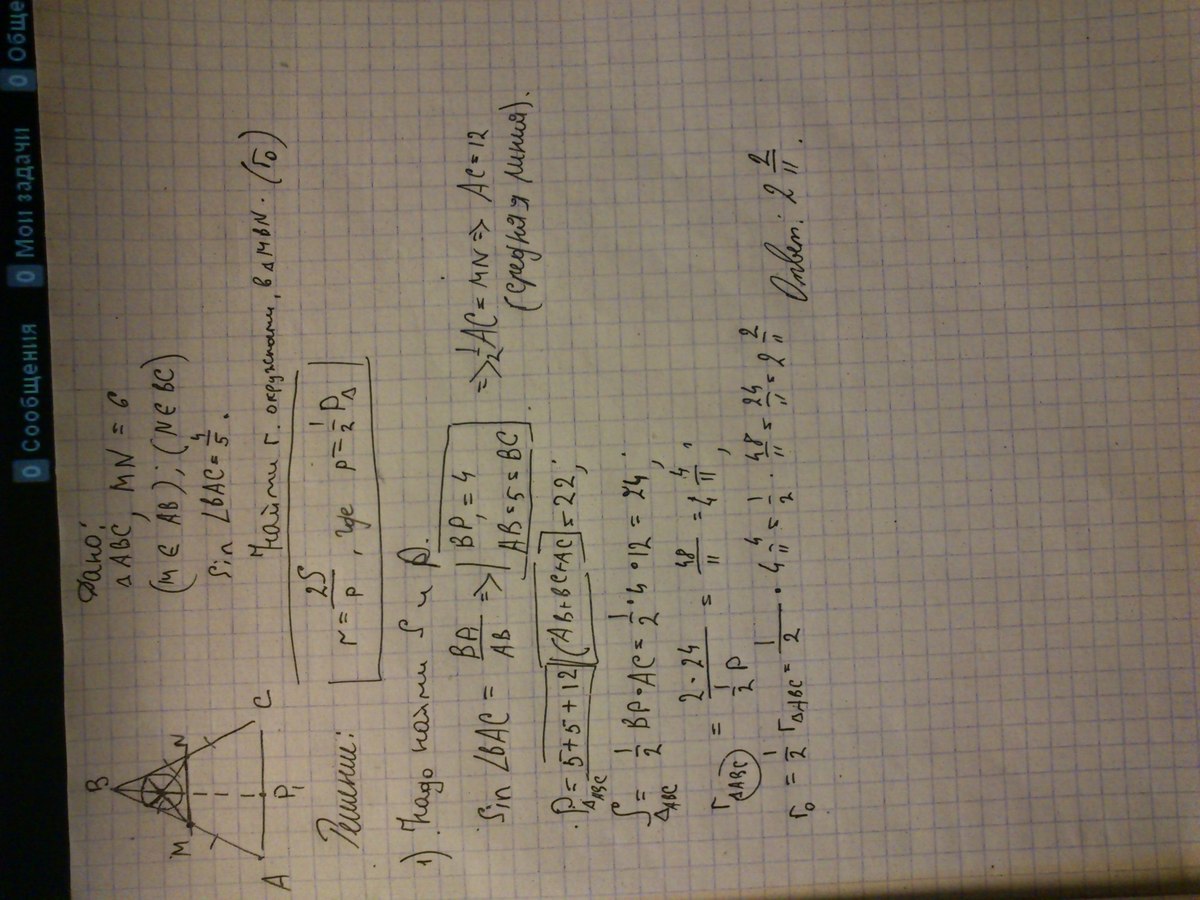 0 Сообщения 0 Мои задачи 0 Обще
Дано:
△ABC, MN = 6
(M ∈ AB); (N ∈ BC)
Sin ∠BAC = 4/5.
Найти r. окружности, в △MBN. (r₀)
B
M
N
A
P₁
C
Решение:
r = 2S/P, где p = 1/2 P△
1) Надо найти S и P.
Sin ∠BAC = BA/AB => | BP₁ = 4 | AB = 5 = BC => 1/2 AC = MN => AC = 12
(средняя линия).
P△ABC = 5 + 5 + 12 (AB + BC + AC) = 22;
S△ABC = 1/2 BP · AC = 1/2 · 4 · 12 = 24;
r△ABC = 2 · 24 / 1/2 P = 48/11 = 4 4/11;
r₀ = 1/2 r△ABC = 1/2 · 4 4/11 = 1/2 · 48/11 = 24/11 = 2 2/11
Ответ: 2 2/11.